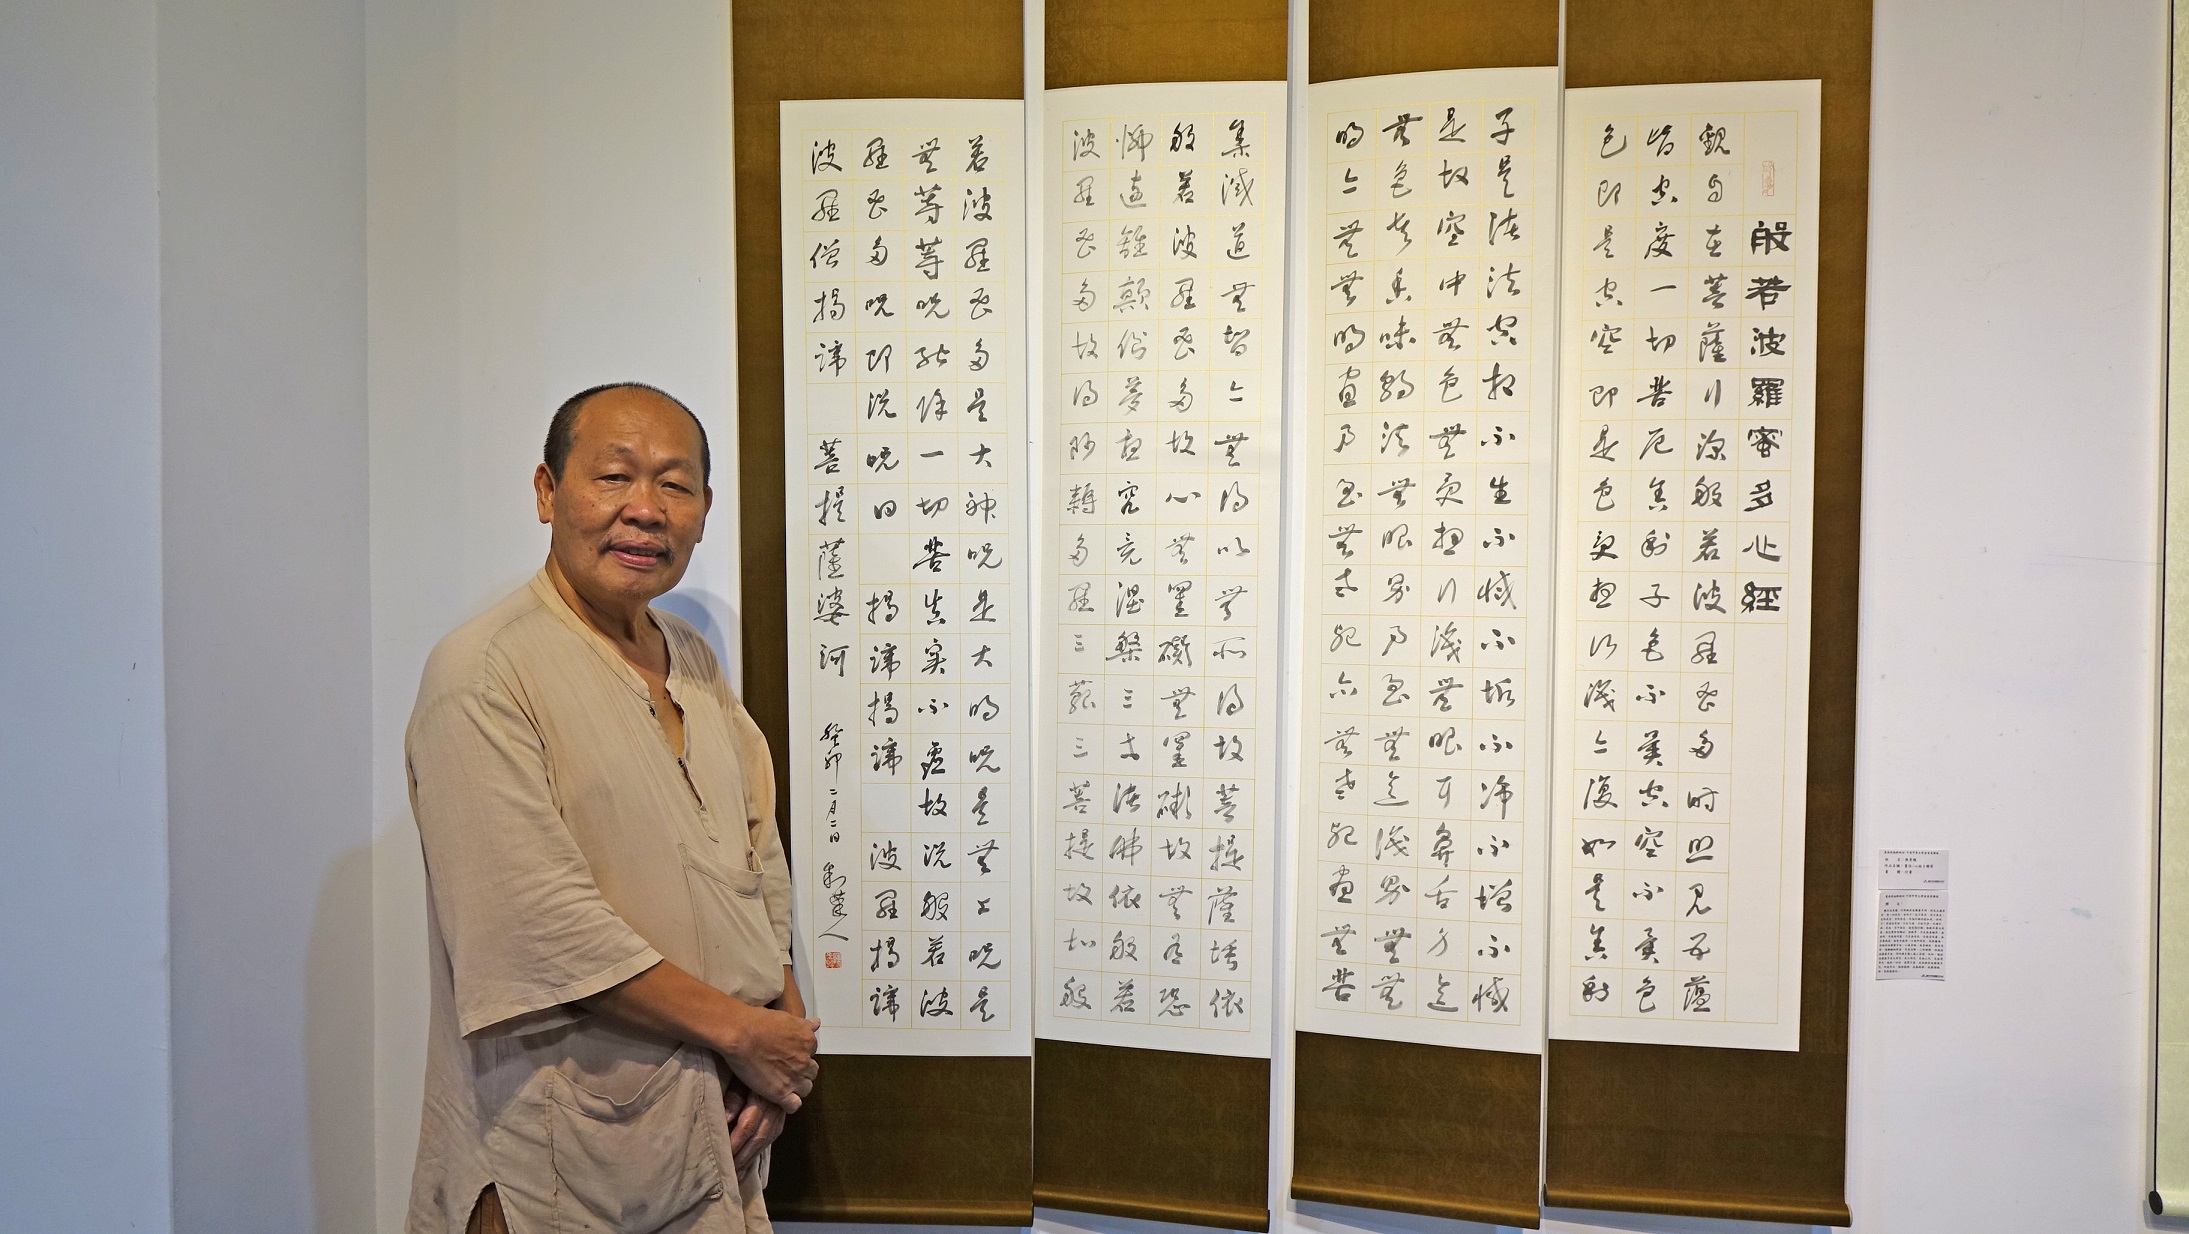 般若波羅蜜多心經
觀自在菩薩行深般若波羅蜜多時照見五蘊
皆空度一切苦厄舍利子色不異空空不異色
色即是空空即是色受想行識亦復如是舍利
子是諸法空相不生不滅不垢不淨不增不減
是故空中無色無受想行識無眼耳鼻舌身意
無色聲香味觸法無眼界乃至無意識界無無
明亦無無明盡乃至無老死亦無老死盡無苦
集滅道無智亦無得以無所得故菩提薩埵依
般若波羅蜜多故心無罣礙無罣礙故無有恐
怖遠離顛倒夢想究竟涅槃三世諸佛依般若
波羅蜜多故得阿耨多羅三藐三菩提故知般
若波羅蜜多是大神咒是大明咒是無上咒是
無等等咒能除一切苦真實不虛故說般若波
羅蜜多咒即說咒曰 揭諦揭諦 波羅揭諦
波羅僧揭諦 菩提薩婆訶 癸卯二月二日